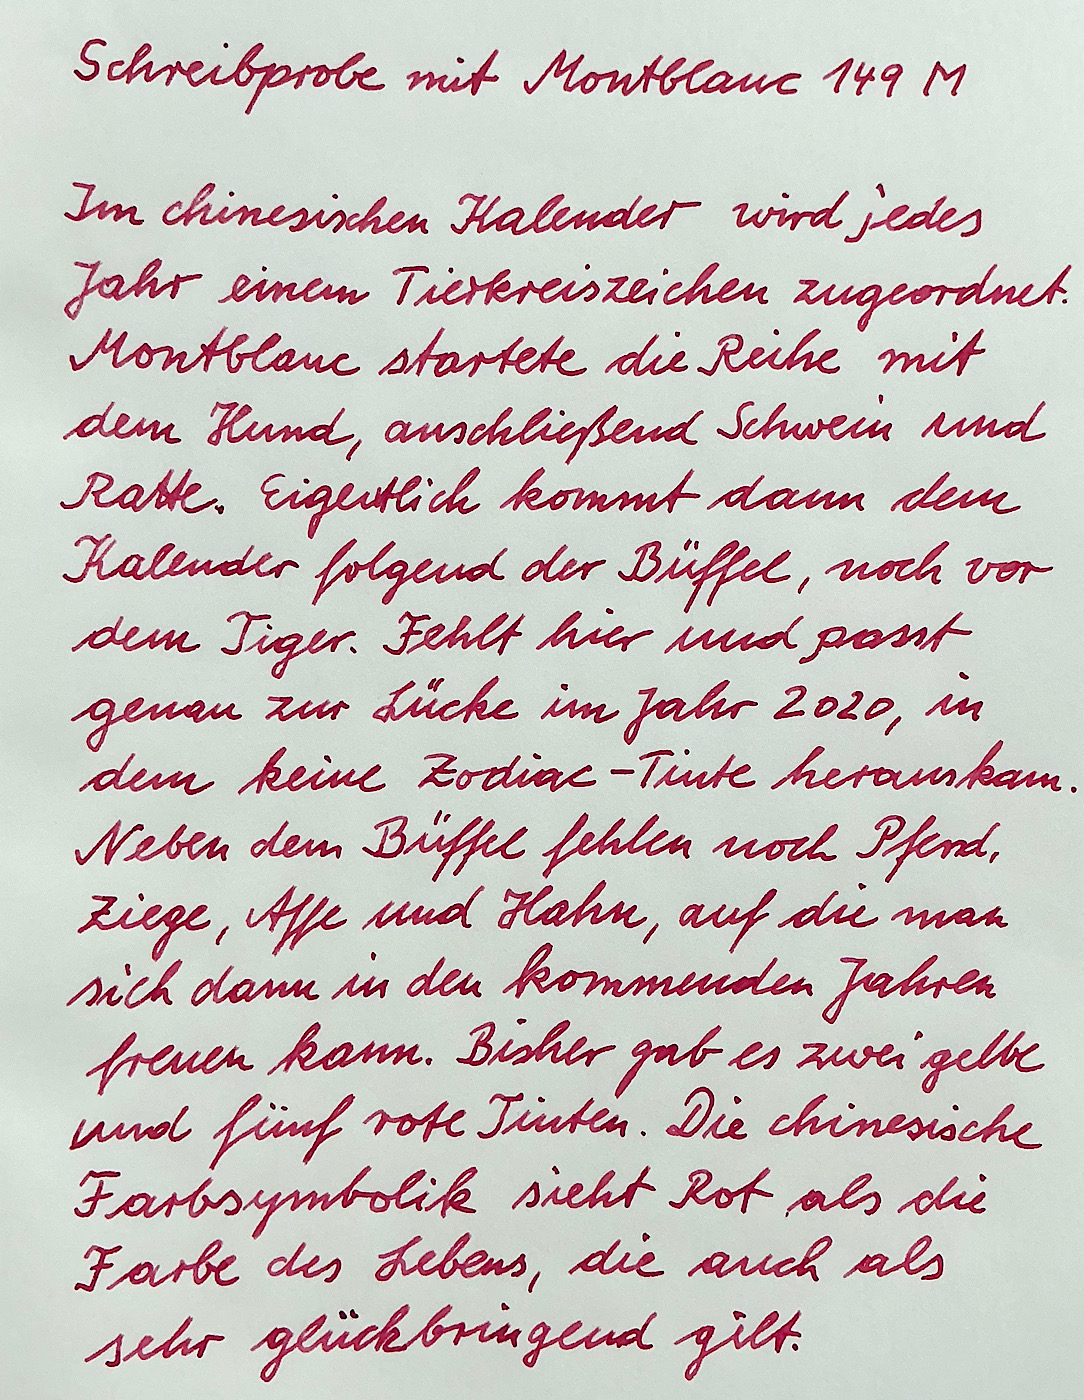 Schreibprobe mit Montblanc 149 M
Im chinesischen Kalender wird jedes
Jahr einem Tierkreiszeichen zugeordnet.
Montblanc startete die Reihe mit
dem Hund, anschließend Schwein und
Ratte. Eigentlich kommt dann dem
Kalender folgend der Büffel, noch vor
dem Tiger. Fehlt hier und passt
genau zur Lücke im Jahr 2020, in
dem keine Zodiac-Tinte herauskam.
Neben dem Büffel fehlen noch Pferd,
Ziege, Affe und Hahn, auf die man
sich dann in den kommenden Jahren
freuen kann. Bisher gab es zwei gelbe
und fünf rote Tinten. Die chinesische
Farbsymbolik sieht Rot als die
Farbe des Lebens, die auch als
sehr glückbringend gilt.